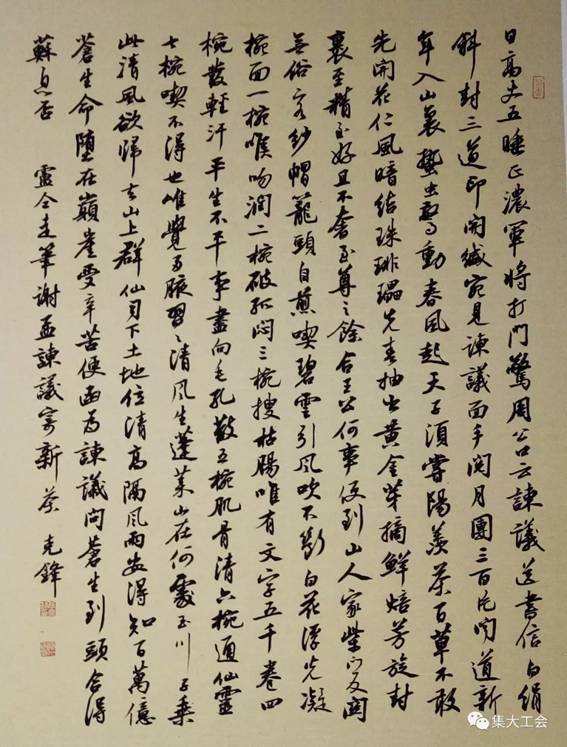 日高丈五睡正濃軍將打門驚周公口云諫議送書信白絹
斜封三道印開緘宛見諫議面手閱月團三百片聞道新
年入山裏蟄蟲驚動春風起天子須嘗陽羨茶百草不敢
先開花仁風暗結珠琲瓃先春抽出黃金芽摘鮮焙芳旋封
裹至精至好且不奢至尊之餘合王公何事便到山人家柴門反關
無俗客紗帽籠頭自煎喫碧雲引風吹不斷白花浮光凝
椀面一椀喉吻潤二椀破孤悶三椀搜枯腸唯有文字五千卷四
椀發輕汗平生不平事盡向毛孔散五椀肌骨清六椀通仙靈
七椀喫不得也唯覺兩腋習習清風生蓬萊山在何處玉川子乘
此清風欲歸去山上群仙司下土地位清高隔風雨安得知百萬億
蒼生命墮在巔崖受辛苦便為諫議問蒼生到頭合得
蘇息否 盧仝走筆謝孟諫議寄新茶 克鋒
集大工会